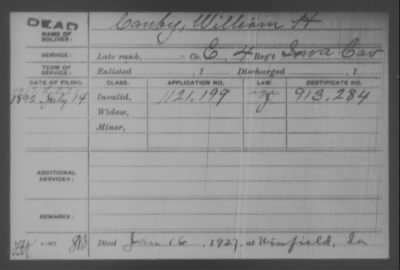 DEAD
NAME OF SOLDIER:
Canby, William H
SERVICE:
Late rank, Co. C, 4 Reg't Iowa Cav
TERM OF SERVICE:
Enlisted , 1 Discharged , 1
DATE OF FILING. CLASS. APPLICATION NO. LAW. CERTIFICATE NO.
1892 July 14 Invalid, 1121,199 913,284
Widow,
Minor,
ADDITIONAL SERVICES:
REMARKS:
Died Jan 16, 1927, at Winfield, Ia